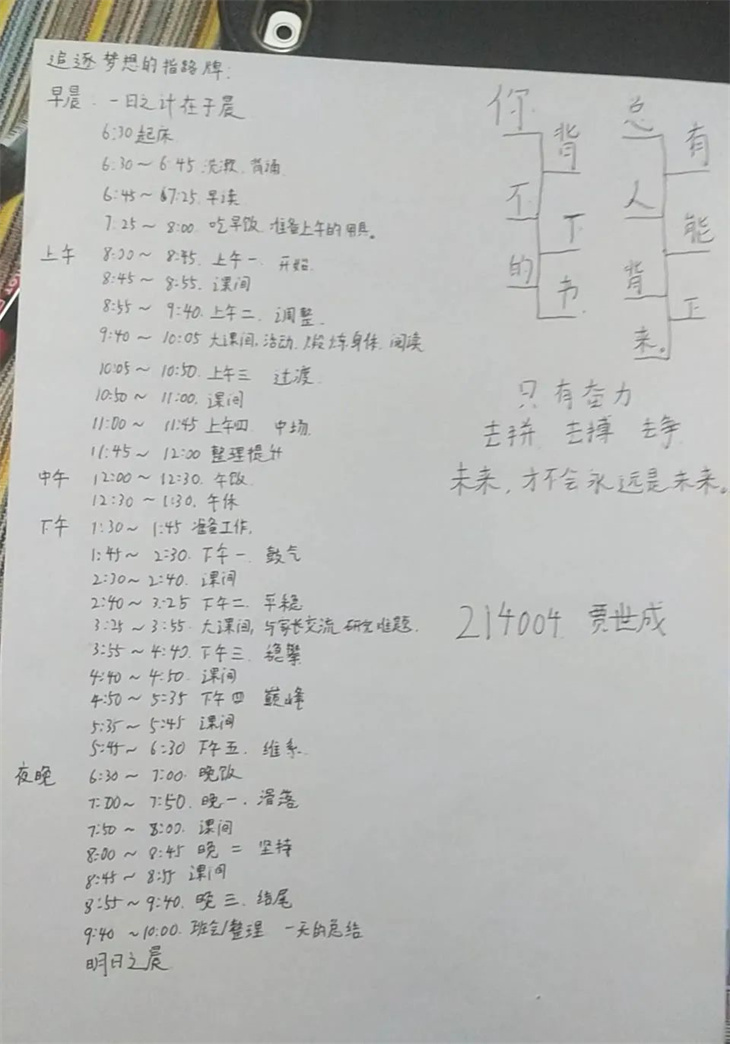 追逐梦想的指路牌:
早晨: 一日之计在于晨
6:30 起床
6:30～6:45 洗漱、背诵
6:45～7:25 早读
7.25～8:00. 吃早饭. 准备上午的用具。
上午 8:00～8:45. 上午一. 开始.
8:45～8:55. 课间
8:55～9:40. 上午二. 调整.
9:40～10:05 大课间、活动、锻炼身体. 阅读
10:05～10:50. 上午三 过渡.
10:50～11:00. 课间
11:00～11:45 上午四. 中场.
11:45～12:00 整理提升
中午 12:00～12:30. 午饭.
12:30～1:30. 午休
下午 1:30～1:45 准备工作.
1:45～2:30. 下午一. 鼓气
2:30～2:40. 课间
2:40～3:25 下午二. 平稳
3:25～3:55. 大课间, 与家长交流 研究难题.
3:55～4:40. 下午三. 稳攀
4:40～4:50. 课间
4:50～5:35 下午四 巅峰
5:35～5:45 课间
5:45～6:30 下午五. 维系.
夜晚 6:30～7:00. 晚饭
7:00～7:50. 晚一. 滑落
7:50～8:00. 课间
8:00～8:45 晚二 坚持
8:45～8:55 课间
8:55～9:40. 晚三. 结尾
9:40～10:00. 班会/整理 一天的总结
明日之晨
你背不下的书
总有人能背下来。
只有奋力
去拼 去搏 去争
未来, 才不会永远是未来。
214004 贾世成